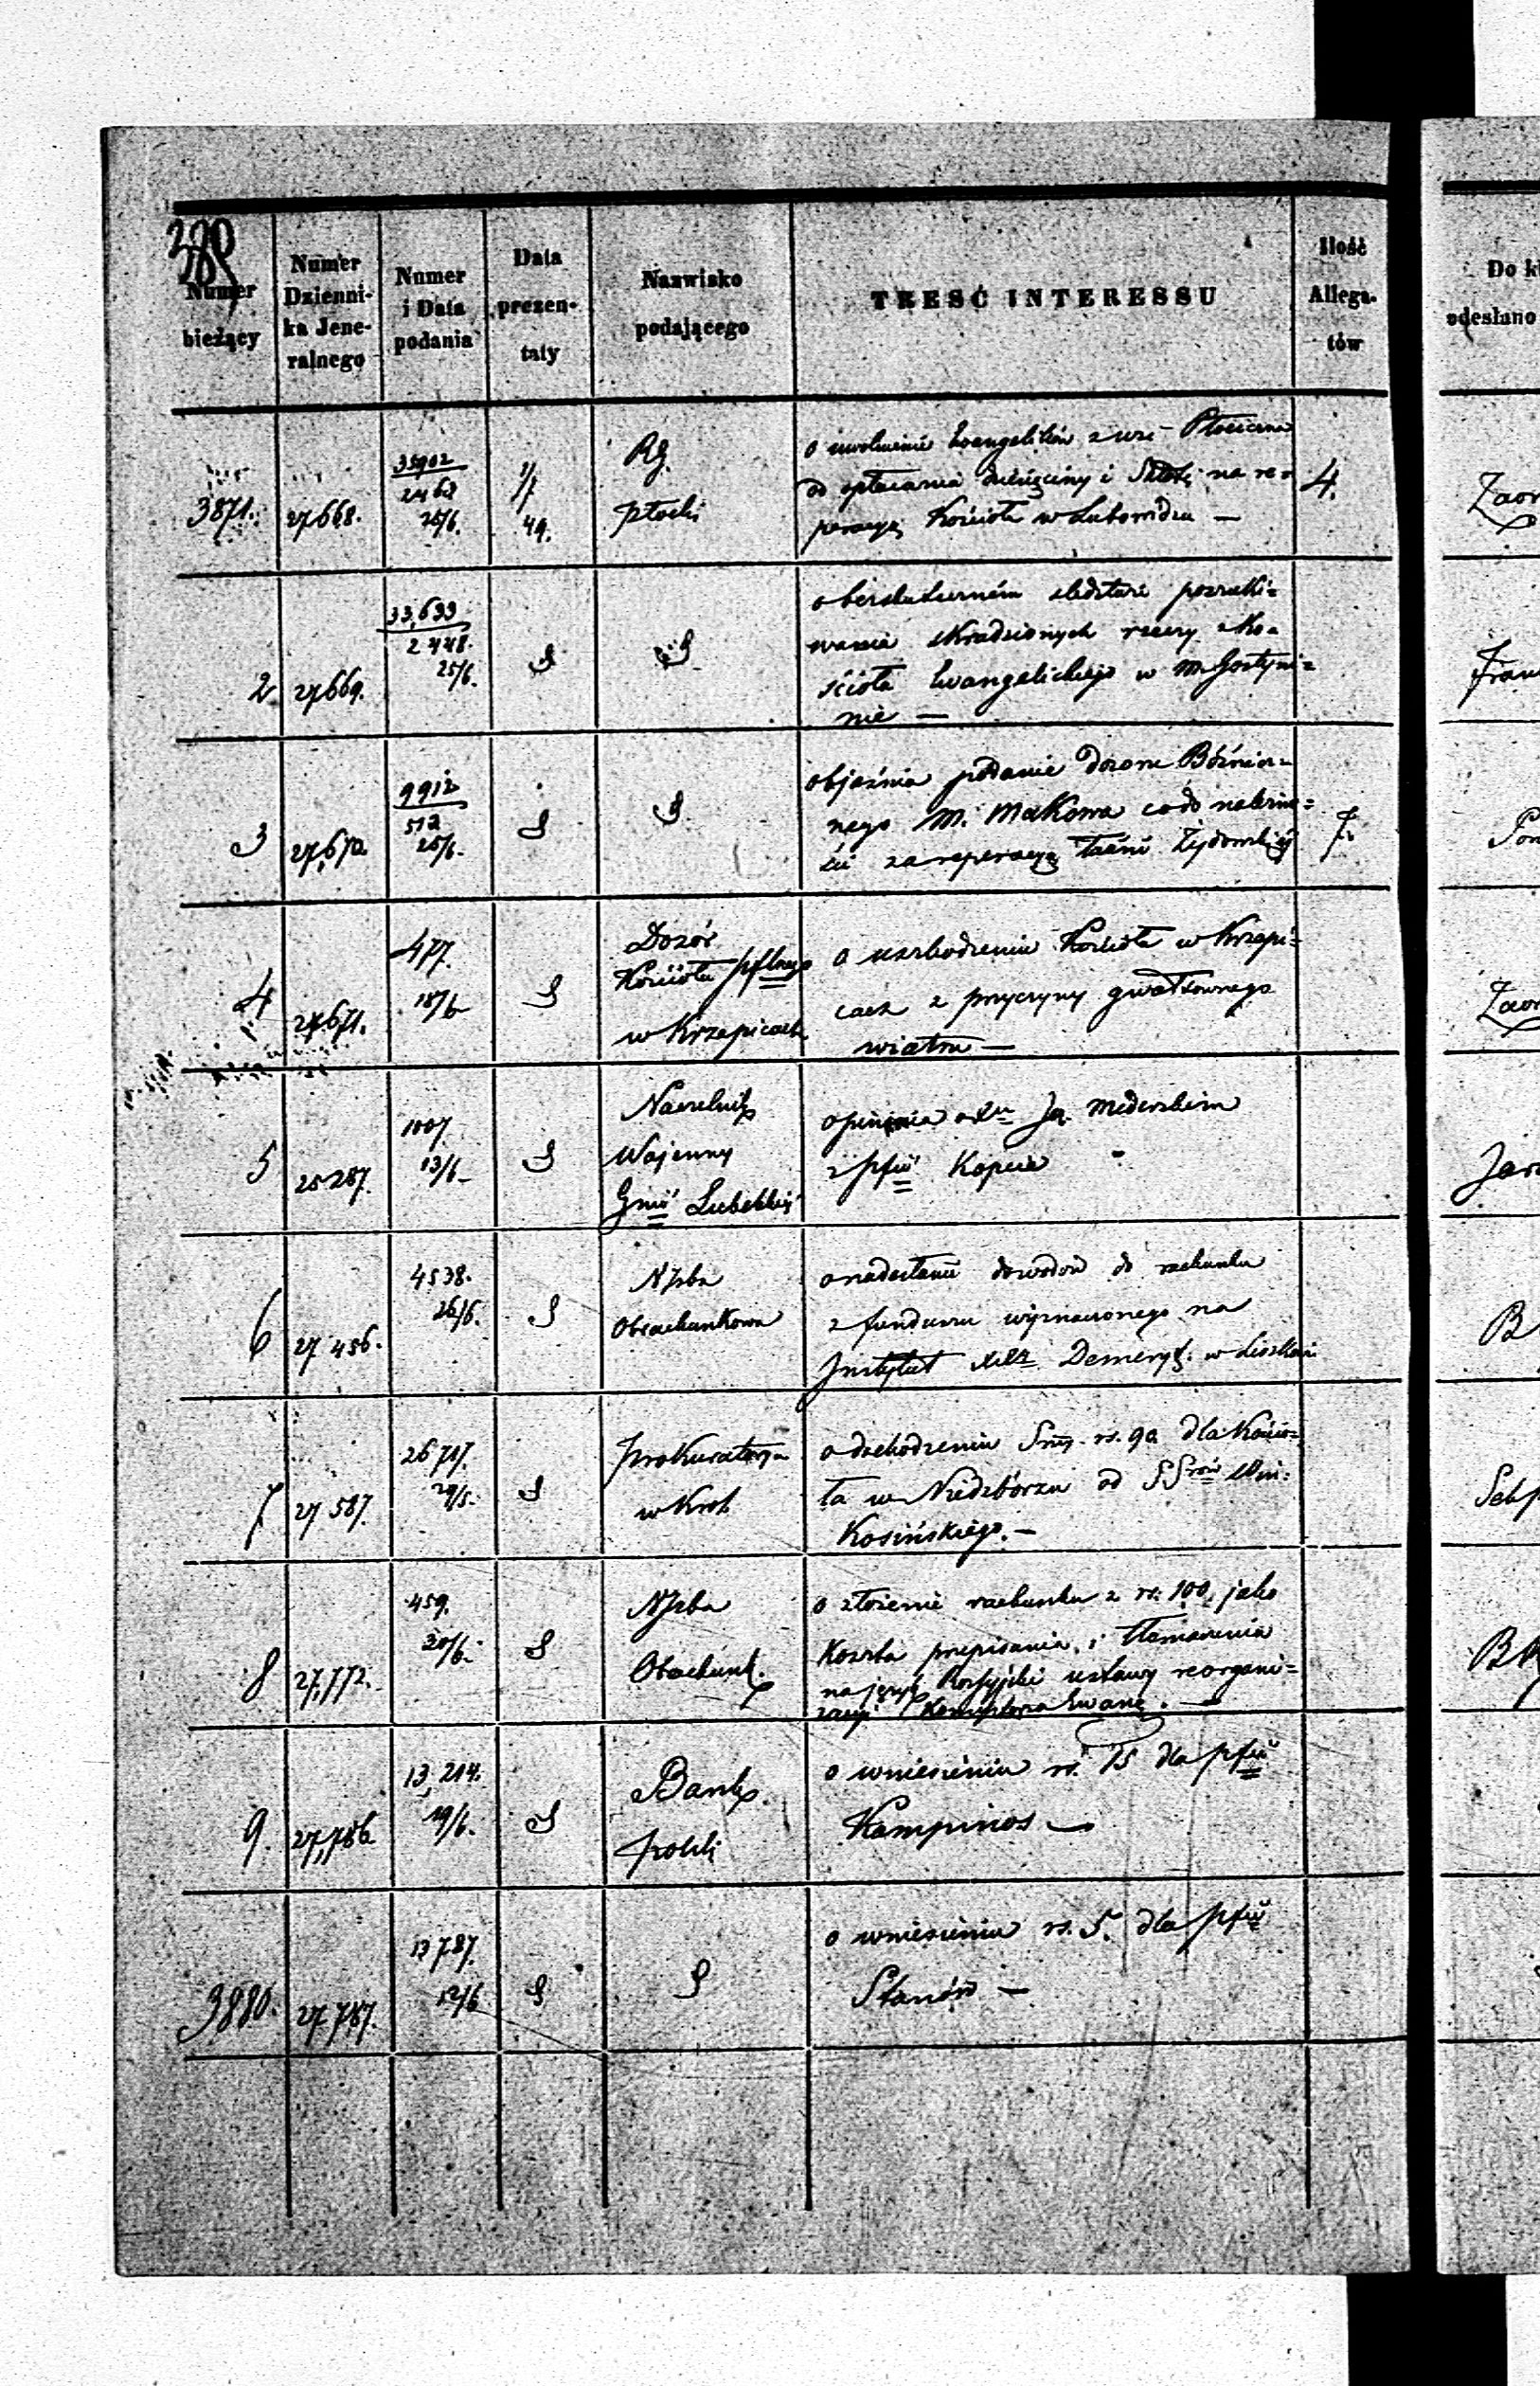 Numer
bieżący
Numer
Dzienni-
ka Jene-
ralnego
Numer
i Data
podania
Data
prezen-
taty
Nazwisko
podającego
TREŚĆ INTERESSU
Ilość
Allega-
tów
Do k
odesłano
3871.
27668.
35902
2468
25/6.
1/7
49.
RG.
Płocki
o uwolnienie Ewangelików z wsi
od opłacania dziesięciny i Składki na re=
peracyę Kościoła w Lubowidzu —
4.
2
27669.
33,633
2448.
25/6.
o bezskuteczném śledztwie poszuki=
wania skradzionych rzeczy z Ko=
ścioła Ewangelickiego w M. Gostyni=
nie —
3
27,670
9912
512
25/6.
objaśnia podanie dozoru Bóżnicz=
nego M. Makowa co do należno=
ści za reperacyę łaźni Żydowskiéj
7.
4
27671.
477.
18/6
Dozór
Kościoła pflnego
w Krzepicach
o uszkodzeniu Kościoła w Krzepi=
cach z przyczyny gwałtownego
wiatru —
5
25287.
1007
13/6
Naczelnik
Wojenny
Gnii Lubelskiej
opinia o Xu Mederskim
z pfii Kopcie
6
27 456.
4538.
26/6.
N Izba
Obrachunkowa
o nadesłanie dowodów do rachunku
z funduszu wyznaczonego na
Instytut XXzy Demeryt. w Liszkowie
7
27 587.
26717.
29/5.
Prokuratorya
w Król.
o dochodzeniu Sumy rs. 90 dla Kościo=
ła w Niedzborzu od SSrów Win.
Kosińskiego. —
8
27,772.
459.
20/6.
N Izba
Obrachunk.
o złożenie rachunku z rs. 100, jako
Koszta przepisania i tłomaczenia
na język Rossyjski ustawy reorgani=
zacyi Konsystorza Ewang. —
9.
27,786
13,214.
19/6.
Bank
Polski
o wniesieniu rs. 15 dla pfii
Kampinos —
3880.
27 787.
13 787.
12/6
o wniesieniu rs. 5. dla pfii
Stanów —